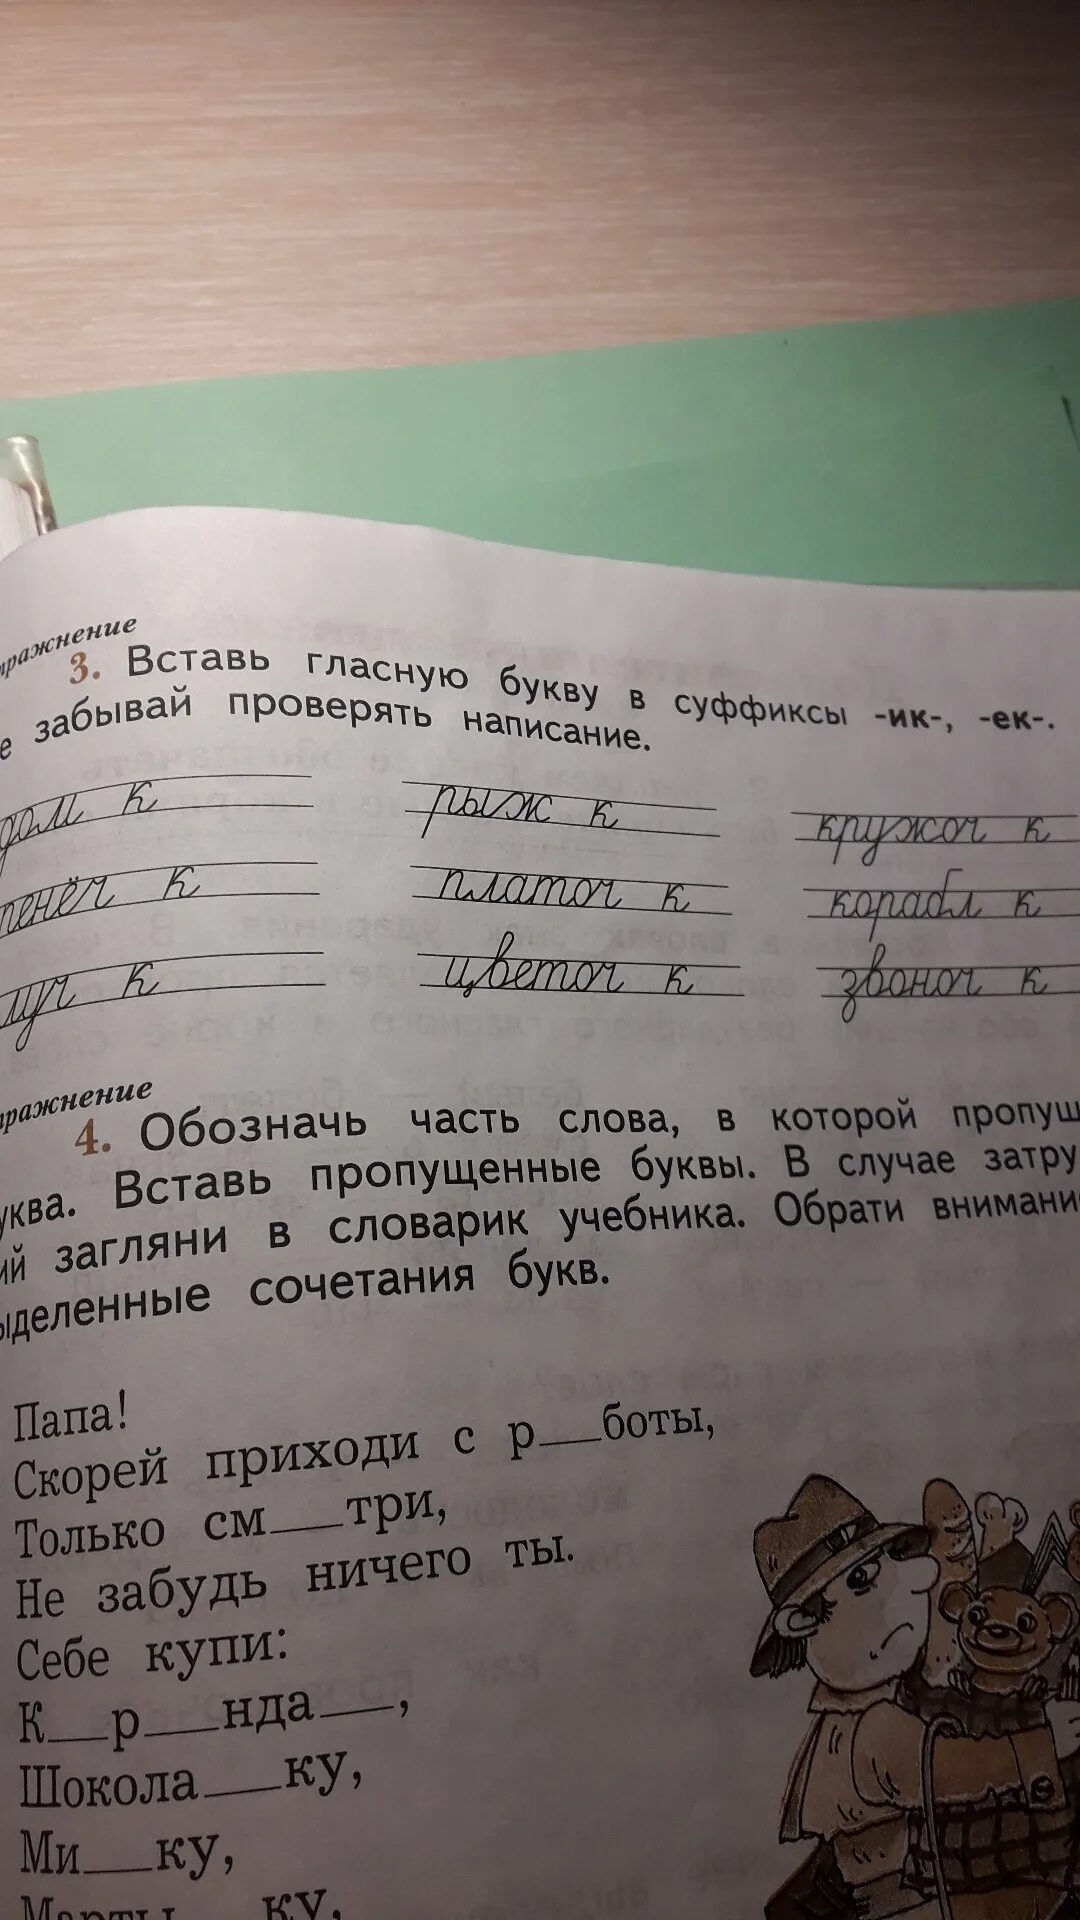 ражнение
3. Вставь гласную букву в суффиксы -ик-, -ек-.
е забывай проверять написание.
дом к рыж к кружоч к
пенёч к платоч к корабл к
луч к цветоч к звоноч к
ражнение
4. Обозначь часть слова, в которой пропущ
уква. Вставь пропущенные буквы. В случае затру
ий загляни в словарик учебника. Обрати внимани
ыделенные сочетания букв.
Папа!
Скорей приходи с р__боты,
Только см__три,
Не забудь ничего ты.
Себе купи:
К__р__нда__,
Шокола__ку,
Ми__ку,
Марты__ку,